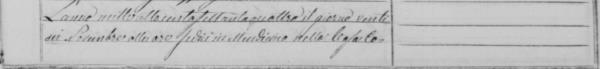 L'anno mille ottocento settantaquattro il giorno venti
sei Dicembre alle ore sedici in Medicina nella Casa Co-